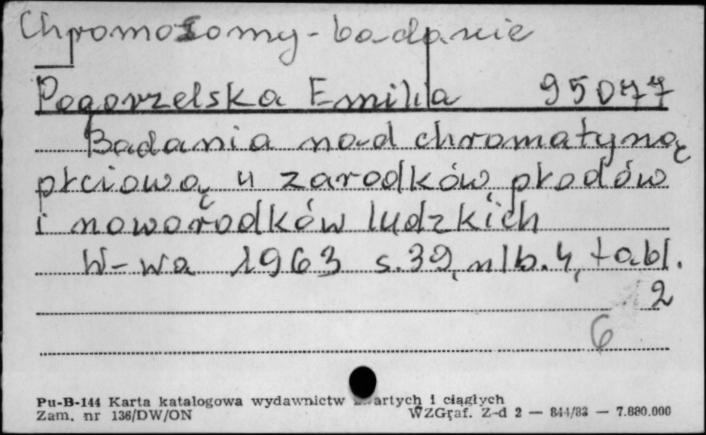 Chromosomy - badanie
Pogorzelska Emilia 95077
Badania nad chromatyną
płciową u zarodków płodów
i noworodków ludzkich
W-wa 1963 s.39, nlb.4, tabl.
2
6
Pu-B-144 Karta katalogowa wydawnictw zwartych i ciągłych
Zam. nr 136/DW/ON WZGraf. Z-d 2 — 844/83 — 7.880.000